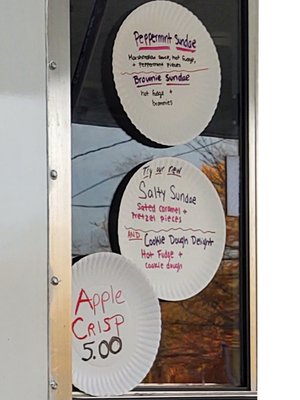 Peppermint Sundae
Marshmallow sauce, hot fudge,
+ Peppermint pieces
Brownie Sundae
hot fudge +
brownies
Try our new
Salty Sundae
Salted caramel +
Pretzel pieces
AND Cookie Dough Delight
Hot Fudge +
cookie dough
Apple
CRISP
5.00